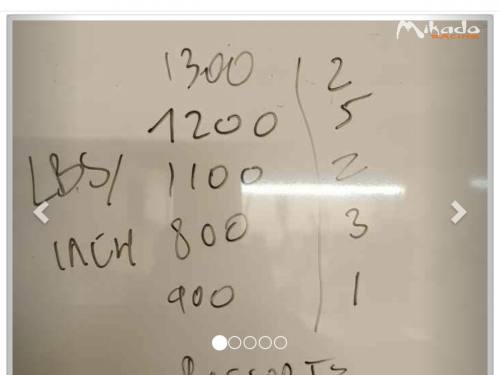 Mikado
RACING
1300 2
1200 5
LBS/ 1100 2
INCH 800 3
900 1